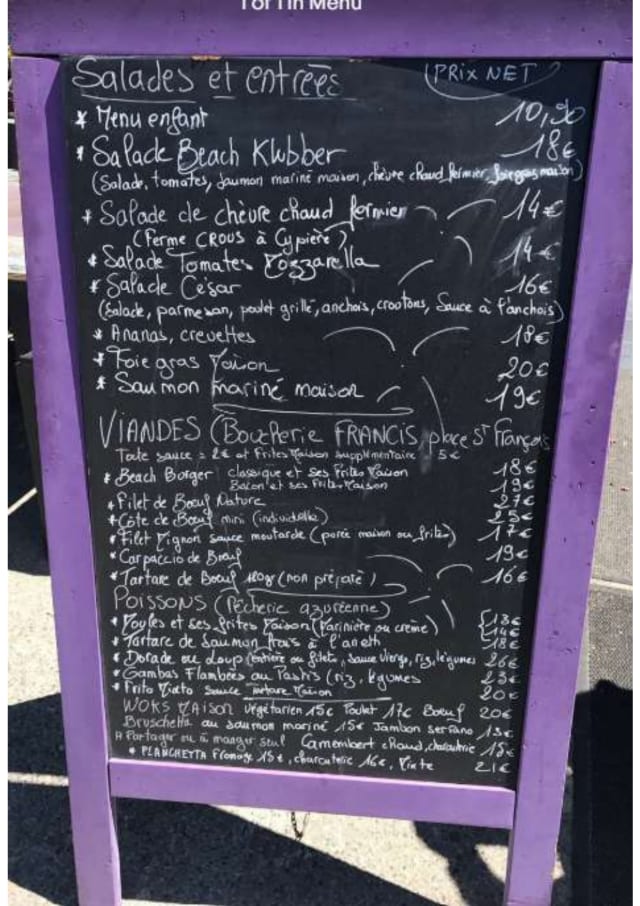 1 of 1 in Menu
Salades et entrées (PRIX NET)
* Menu enfant 10,90
* Salade Beach Klubber 18€
(Salade, tomates, saumon mariné maison, chèvre chaud fermier, foie gras maison)
* Salade de chèvre chaud fermier 14€
(Ferme CROUS à Cypière)
* Salade Tomates Mozzarella 14€
* Salade César 16€
(Salade, parmesan, poulet grillé, anchois, croutons, Sauce à l'anchois)
* Ananas, crevettes 18€
* Foie gras Maison 20€
* Saumon mariné maison 19€
VIANDES (Boucherie FRANCIS, place St François
Toute sauce = 2€ et Frites Maison supplémentaire 5€
* Beach Burger classique et ses Frites Maison 18€
Bacon et ses Frites Maison 19€
* Filet de Boeuf Nature 27€
* Côte de Boeuf mini (individuelle) 25€
* Filet Mignon sauce moutarde (purée maison ou frites) 17€
* Carpaccio de Boeuf 19€
* Tartare de Boeuf 180gr (non préparé) 16€
POISSONS (Pêcherie azuréenne)
* Moules et ses frites Maison (Marinière ou crème) 13€
14€
* Tartare de Saumon frais à l'aneth 18€
* Dorade ou Loup (entière ou filets, sauce vierge, riz, légumes 26€
* Gambas Flambées au Pastis (riz, légumes 23€
* Frito Misto Sauce tartare Maison 20€
WOKS MAISON Végétarien 15€ Poulet 17€ Boeuf 20€
Bruschetta au saumon mariné 15€ Jambon serrano 13€
A Partager ou à manger seul Camembert chaud, charcuterie 15€
* PLANCHETTA Fromage 15€, charcuterie 16€, Mixte 21€